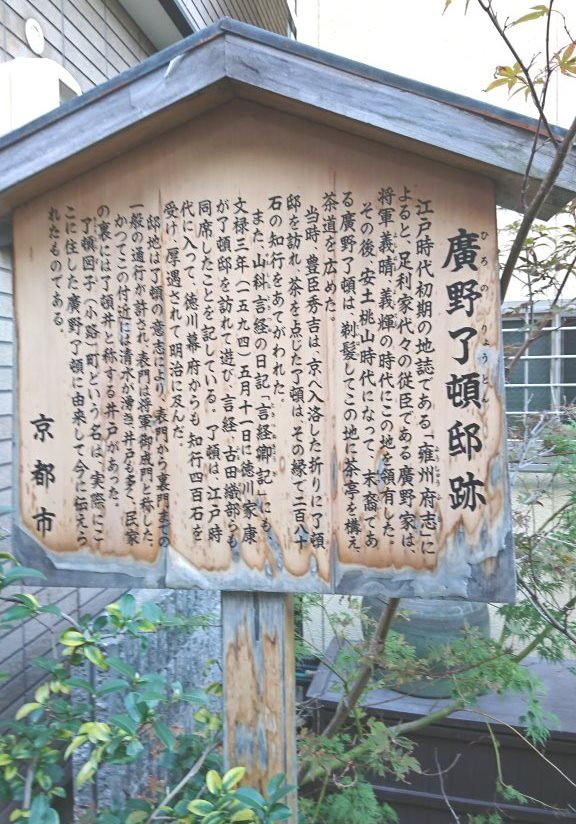 廣野了頓邸跡
ひろのりょうとん
江戸時代初期の地誌である「雍州府志」に
よると、足利家代々の従臣である廣野家は、
将軍義晴、義輝の時代にこの地を領有した。
その後、安土桃山時代になって、末裔であ
る廣野了頓は、剃髪してこの地に茶亭を構え、
茶道を広めた。
当時、豊臣秀吉は、京へ入洛した折りに了頓
邸を訪れ、茶を点じた了頓は、その縁で二百八十
石の知行をあてがわれた。
また、山科言経の日記「言経卿記」にも、
文禄三年（一五九四）五月十一日に徳川家康
が了頓邸を訪れて遊び、言経、古田織部らも
同席したことを記している。了頓は、江戸時
代に入って、徳川幕府からも知行四百石を
受け、厚遇されて明治に及んだ。
邸地は了頓の意志により、表門から裏門までの
一般の通行が許され、表門は将軍御成門と称した。
かつてこの付近には清水が湧き、井戸も多く、民家
の裏には了頓井と称する井戸があった。
了頓図子（小路）町という名は、実際にこ
こに住した廣野了頓に由来して今に伝えら
れたものである。
京都市